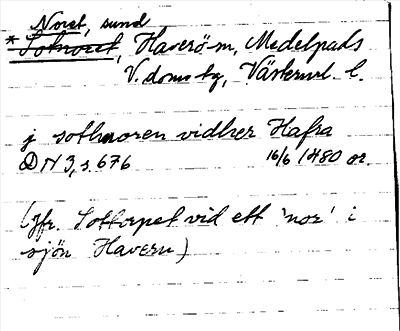 Noret, sund
*Sotnoret, Haverö sn, Medelpads
V. doms bg, Västernrl. l.
j sothnoren vidher Hafra
DN 3, s. 676 16/6 1480 or.
(Jfr. Sottorpet vid ett 'nor' i
sjön Havern)